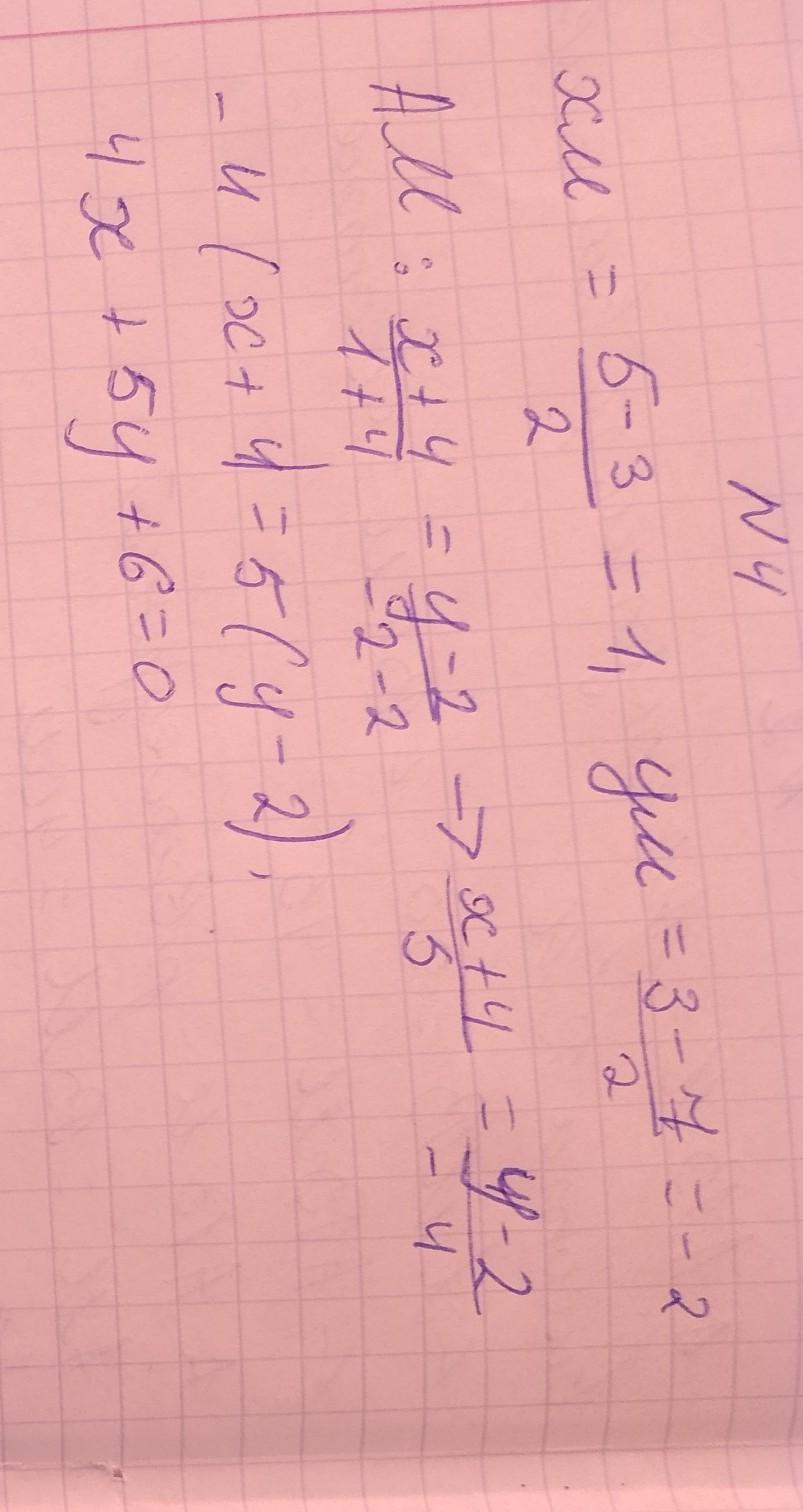 N4
xм = 5-3/2 = 1, yм = 3-7/2 = -2
AM: x+4/1+4 = y-2/-2-2 → x+4/5 = y-2/-4
-4(x+4)=5(y-2),
4x+5y+6=0